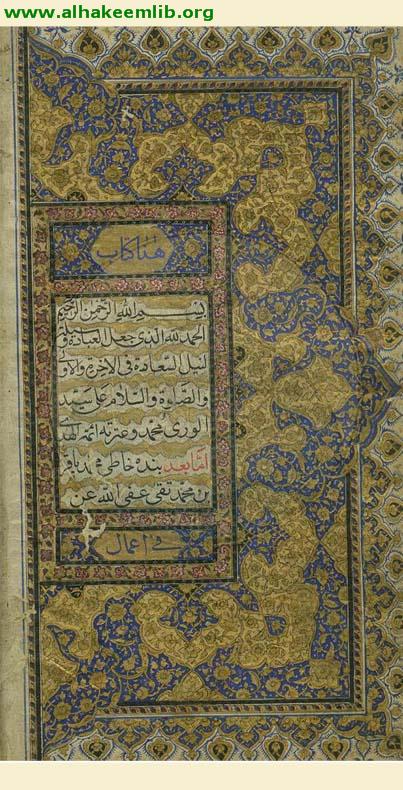 www.alhakeemlib.org
هذا كتاب
بسم الله الرحمن الرحيم
الحمد لله الذي جعل العبادة وسيلة
لنيل السعادة في الاخرة والاولى
والصلوة والسلام على سيد
الورى محمد وعترته ائمة الهدى
اما بعد بنده خاطى محمد باقر
بن محمد تقى عفى الله عن
في اعمال